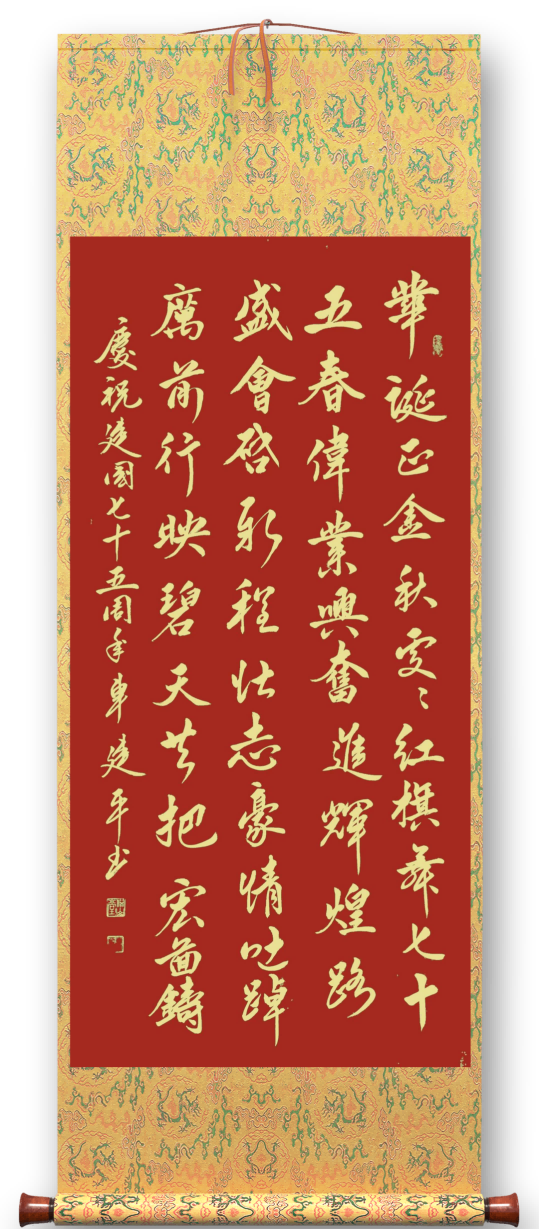 華誕正金秋雯〻紅旗舞七十
五春偉業興奮進輝煌路
盛會啓新程壯志豪情吐踔
厲前行映碧天共把宏圖鑄
慶祝建國七十五周年車建平書